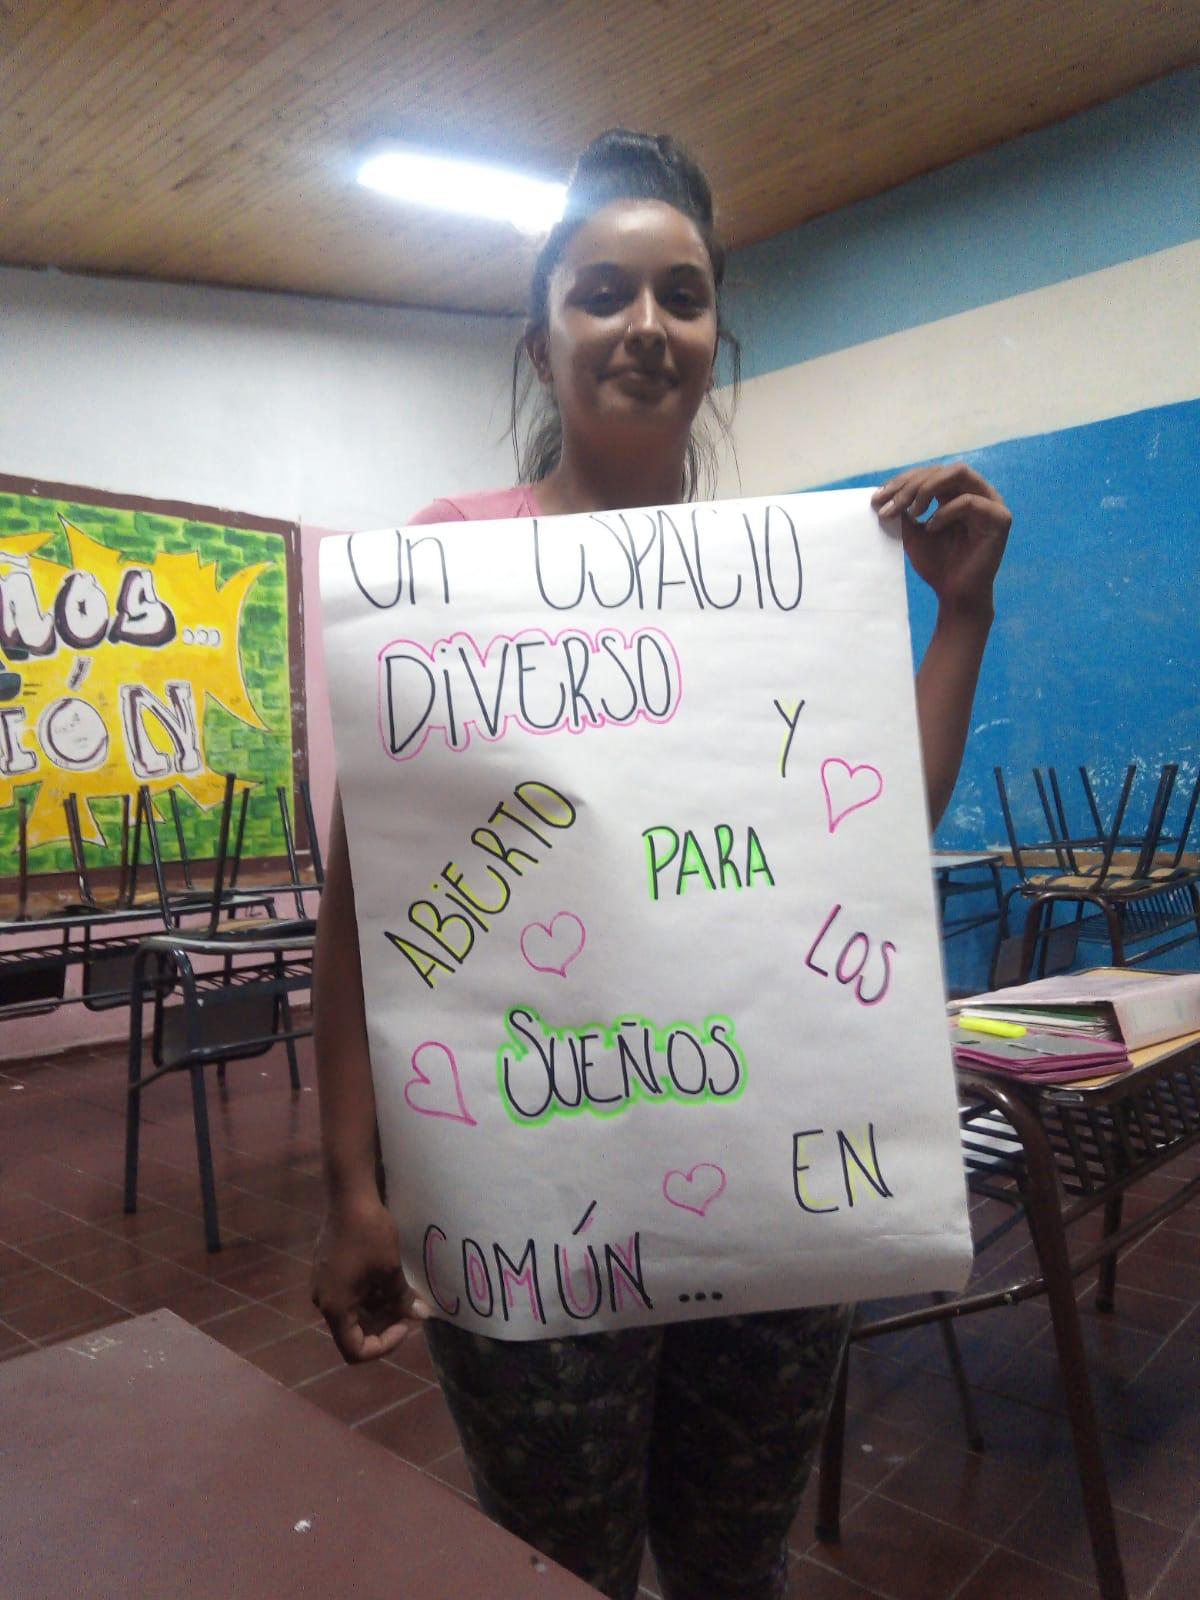 Un ESPACIO
DiVERSO
Y
ABiERTO
PARA
LOS
SUEÑOS
EN
COMÚN...
ÑOS...
IÓN